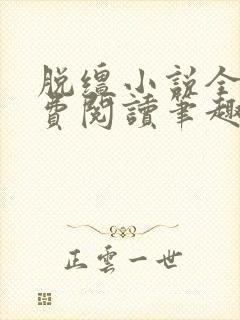 脱缰小说全
费阅讀笔趣
正雲一世